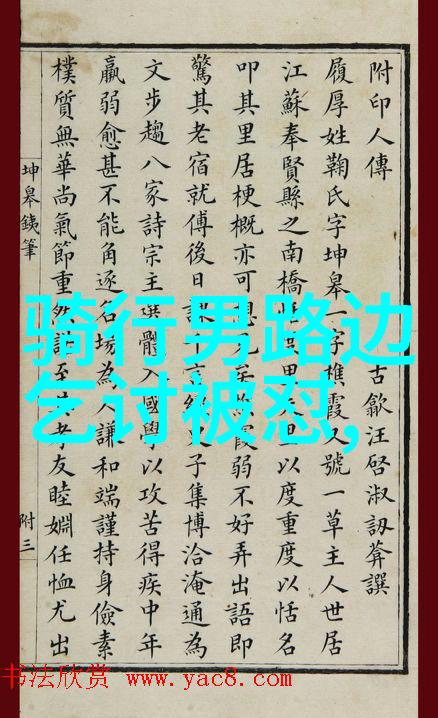 附印人傳 古歙汪啓淑訒葊譔
履厚姓鞠氏字坤皋一字樵霞又號一草主人世居
江蘇奉賢縣之南橋 以度重度以恬名
叩其里居梗概亦可 霞弱不好弄出語即
驚其老宿就傅後日課 子集博洽淹通為
文步趨八家詩宗主選體入國學以攻苦得疾中年
羸弱愈甚不能角逐名場為人謙和端謹持身儉素
樸質無華尚氣節重然諾至 孝友睦婣任恤尤出
坤皋銕筆
附三
骑行男路边
乞讨被怼,
书法欣赏 www.yac8.com